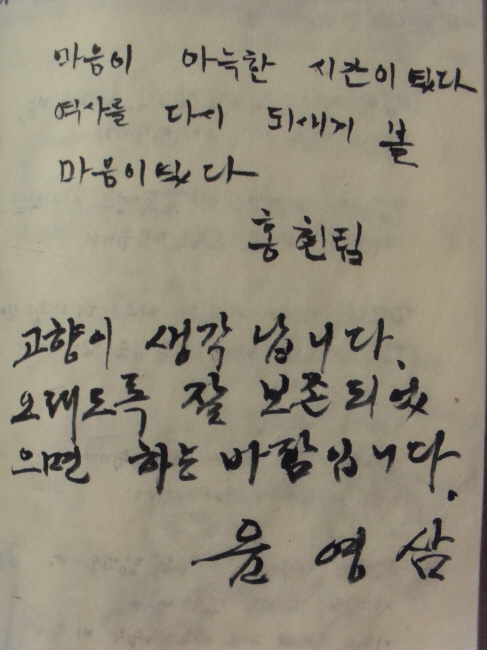 마음이 아늑한 시간이 됬다
역사를 다시 되새겨 볼
마음이 됬다
홍
고향이 생각 납니다.
오래도록 잘 보존 되었
으면 하는 바람입니다.
윤 영 삼